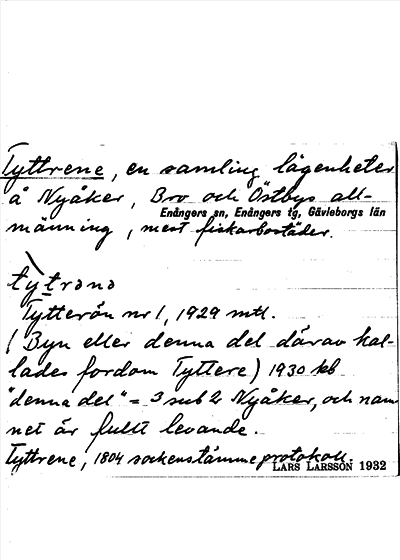 Tyttrene, en samling lägenheter
å Nyåker, Bro och Östbys all-
Enångers sn, Enångers tg, Gävleborgs län
männing, mest fiskarbostäder.
tytrənə
Tytterön nr 1, 1929 mtl.
(Byn eller denna del därav kal-
lades fordom Tyttere) 1930 kb
"denna del" = 3 sub 2 Nyåker, och nam-
net är fullt levande.
Tyttrene, 1804 sockenstämmeprotokoll.
LARS LARSSON 1932